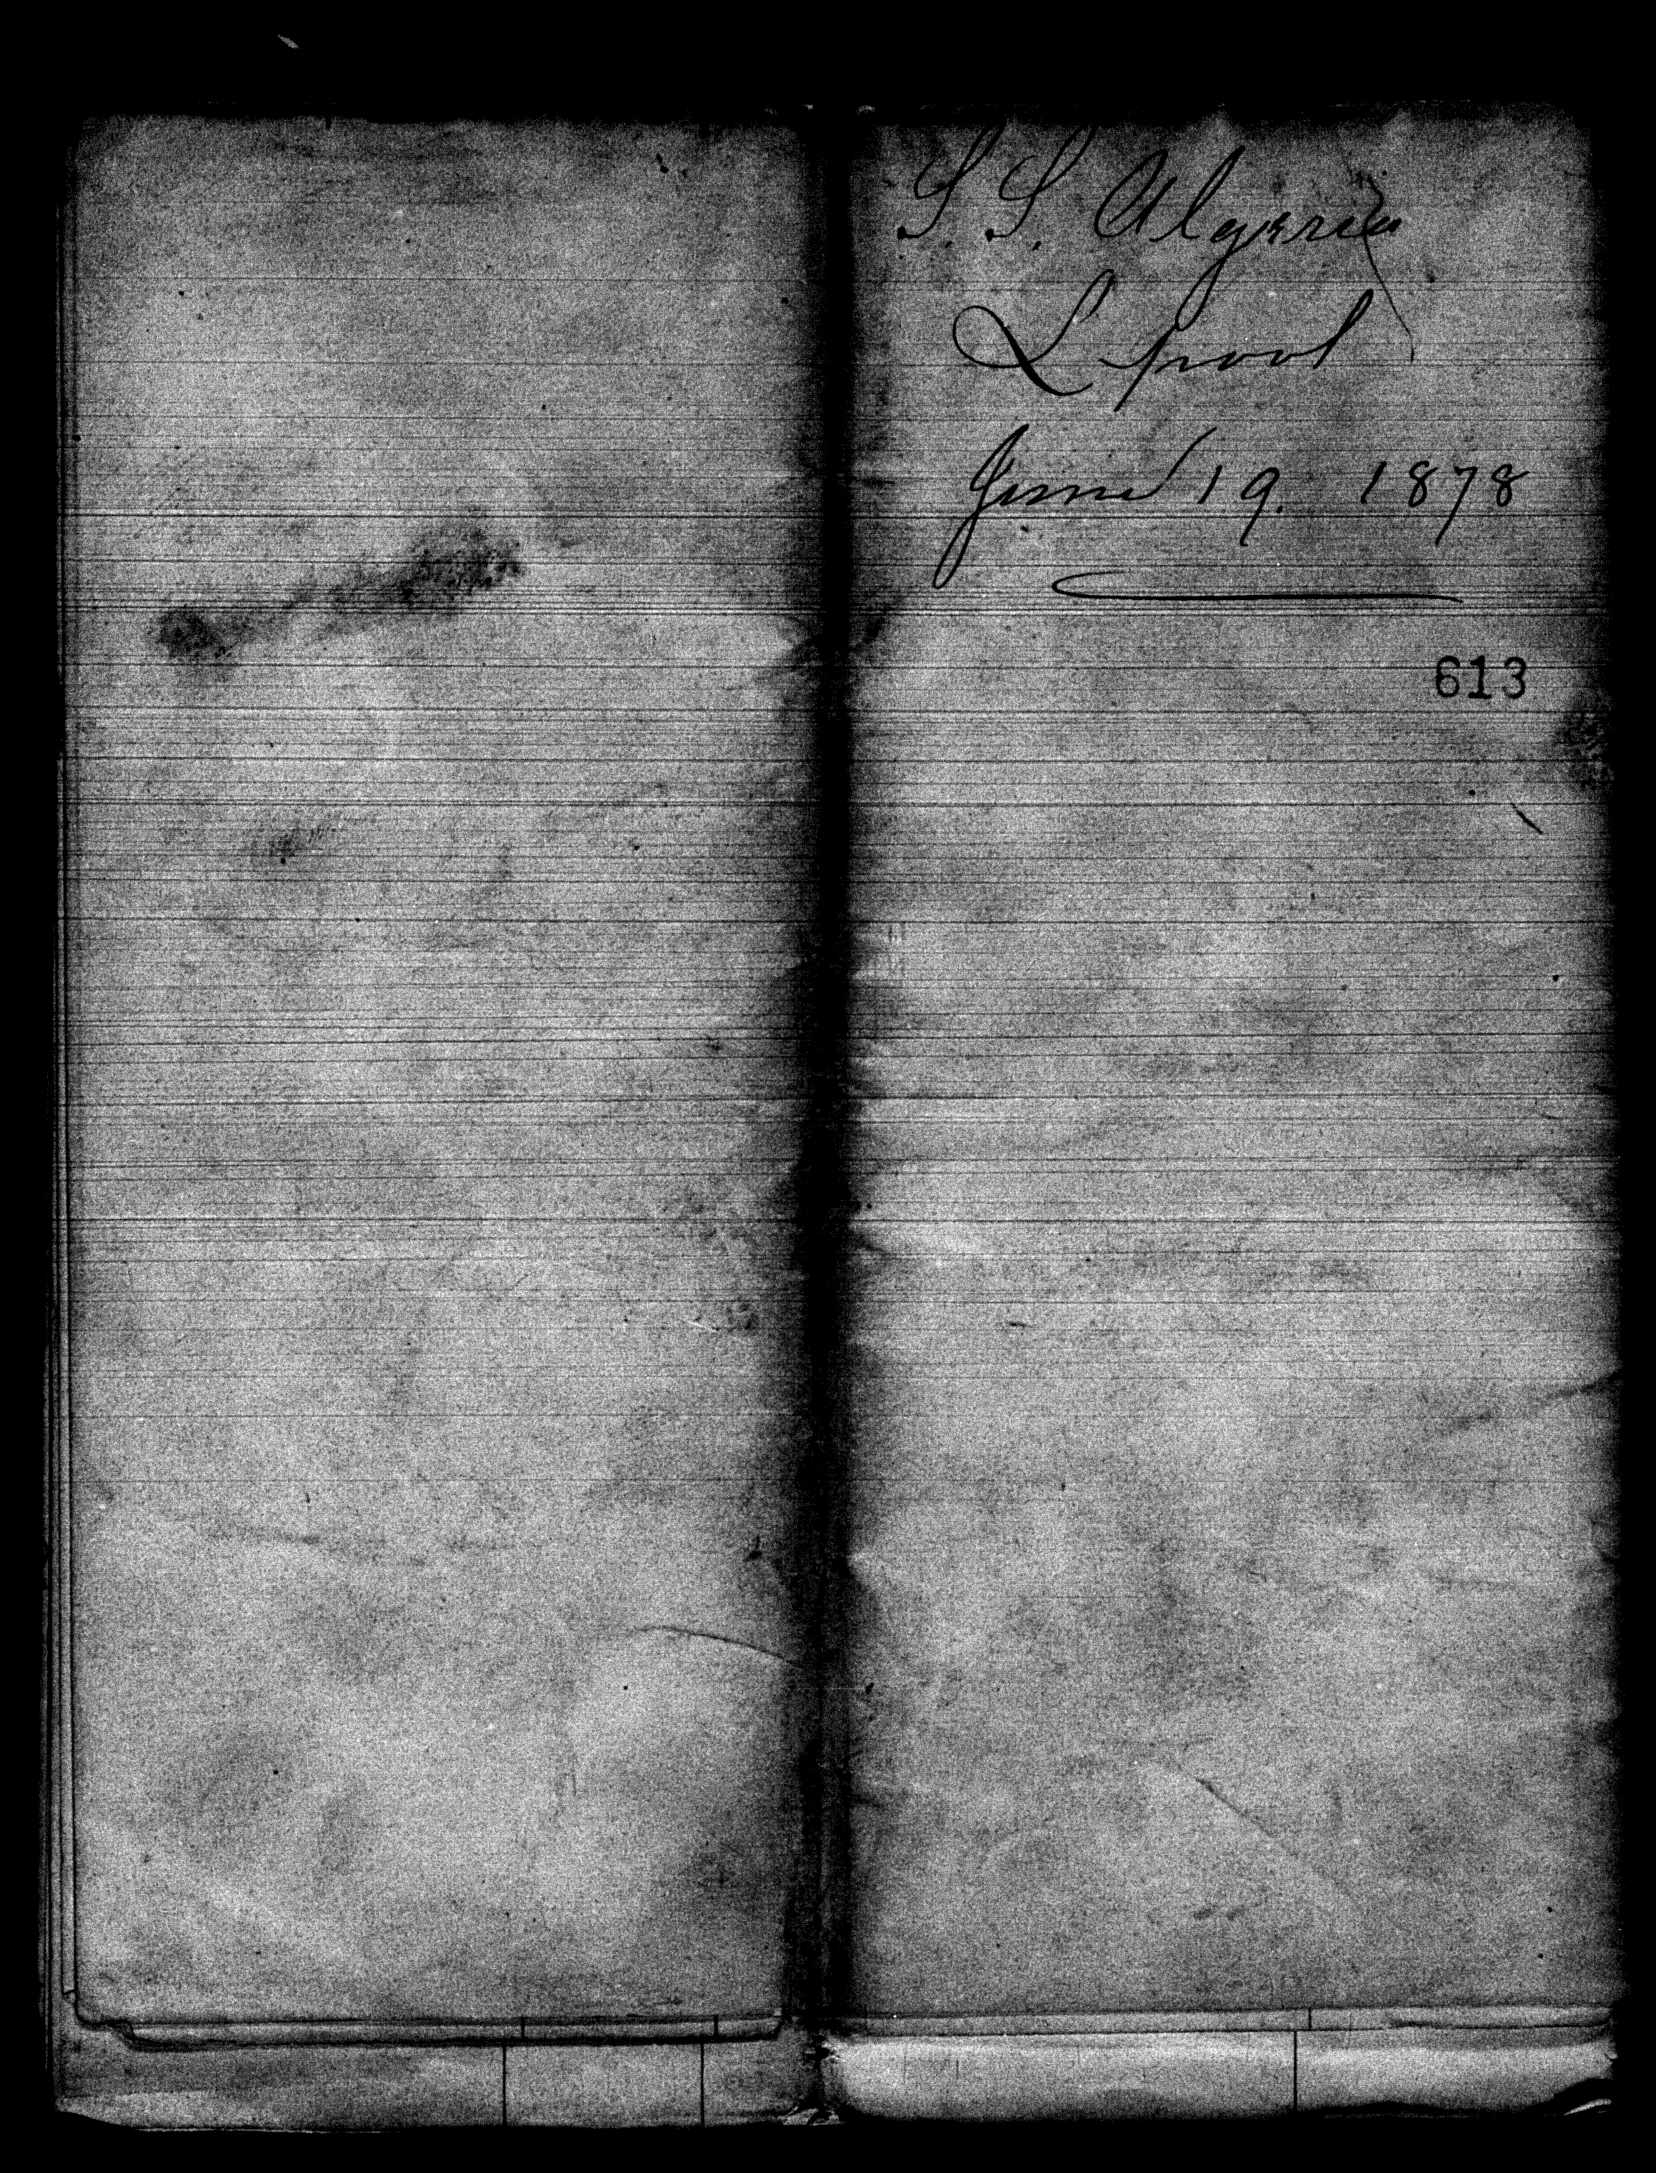 S. S. Algeria
L'pool
June 19. 1878
613